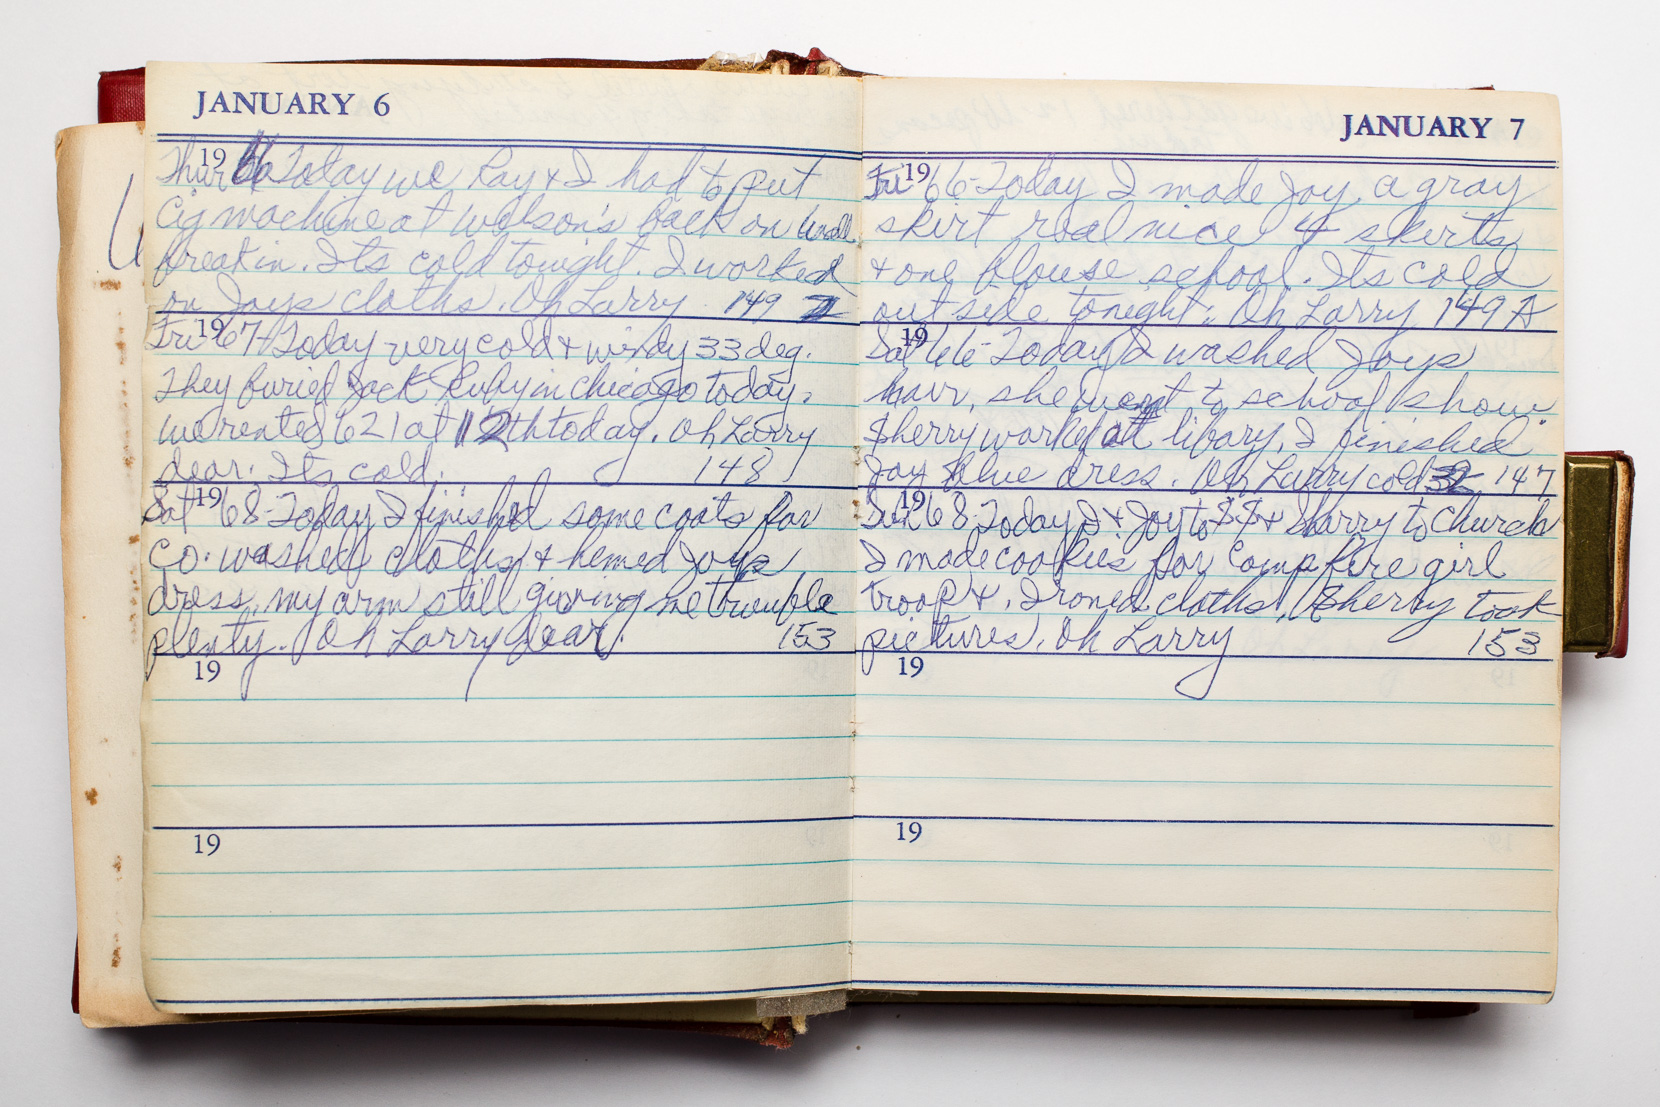 JANUARY 6
Thur 19 66 Today we Ray & I had to put
Cig machine at Watson's back on wall
break in. Its cold tonight. I worked
on Joys cloths. Oh Larry 149
Fri 19 67 Today very cold & windy 33 deg.
They buried Jack Ruby in Chicago today.
we rented 621 at 12th today. Oh Larry
dear. Its cold. 148
Sat 19 68-Today I finished some coats for
Co. washed cloths & hemed Joys
dress, my arm still giving me trouble
plenty. Oh Larry dear. 153
19
19
JANUARY 7
Fri 19 66-Today I made Joy a gray
skirt real nice 4 skirts
& one blouse school. Its cold
outside tonight. Oh Larry 149
Sat 19 66-Today I washed Joys
hair, she went to school show
Sherry worked at libary. I finished
Joy blue dress. Oh Larry cold 147
Sun 19 68 Today I & Joy to S.S. & Sharry to Church
I made cookies for Campfire girl
troop &. Ironed cloths, Sherry took
pictures. Oh Larry 153
19
19